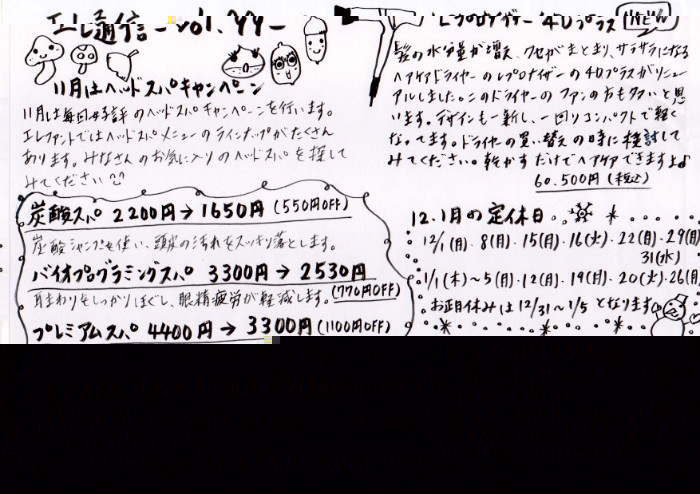 エレ通信 - vol. 99 -
11月はヘッドスパキャンペーン
11月は毎回好評のヘッドスパキャンペーンを行います。
エレファントではヘッドスパメニューのラインナップがたくさん
あります。みなさんのお気に入りのヘッドスパを探して
みてください
炭酸スパ 2200円→1650円 (550円OFF)
炭酸シャンプーを使い、頭皮の汚れをスッキリ落とします。
バイオプログラミングスパ 3300円→2530円
(770円OFF)
目まわりもしっかりほぐし、眼精疲労が軽減します。
プレミアムスパ 4400円→3300円 (1100円OFF)
レプロナイザー 4Dプラス
髪の水分量が増え、クセがまとまり、サラサラになる
ヘアケアドライヤーのレプロナイザーの4Dプラスがリニュー
アルしました。このドライヤーのファンの方も多いと思
います。デザインも一新し、一回りコンパクトで軽く
なってます。ドライヤーの買い替えの時に検討して
みてください。乾かすだけでヘアケアできますよ♪
60.500円(税込)
12.1月の定休日
12/1(月)・8(月)・15(月)・16(火)・22(月)・29(月)
31(水)
1/1(木)～5(月)・12(月)・19(月)・20(火)・26(月)
お正月休みは12/31～1/5となります。